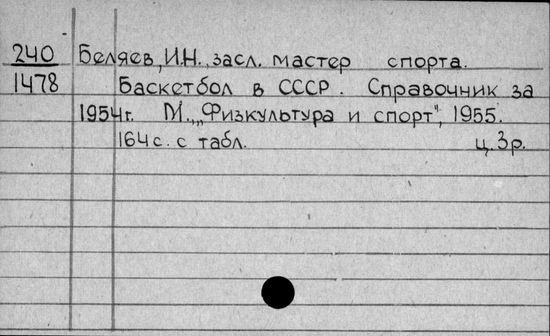 240 Беляев, И.Н., засл. мастер спорта.
1478 Баскетбол в СССР. Справочник за
1954г. М., „Физкультура и спорт", 1955.
164с. с табл. ц. 3р.